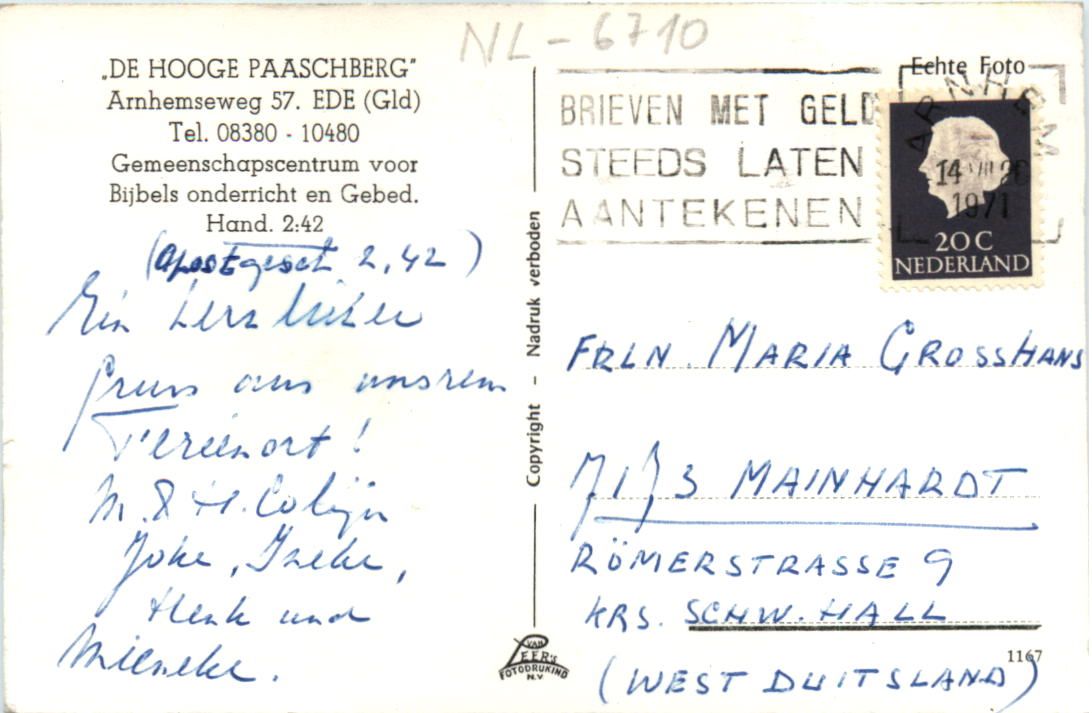 NL - 6710
„DE HOOGE PAASCHBERG"
Arnhemseweg 57. EDE (Gld)
Tel. 08380 - 10480
Gemeenschapscentrum voor
Bijbels onderricht en Gebed.
Hand. 2:42
(Apostgesch. 2,42)
Ein herzlicher
Gruss aus unsrem
Ferienort!
M. & H. Colijn
Joke, Ineke,
Henk und
Mieneke.
Copyright - Nadruk verboden
VAN LEER'S
FOTODRUKIND
N.V
Echte Foto
BRIEVEN MET GELD
STEEDS LATEN
AANTEKENEN
ARNHEM
14 VII 20
1971
20C
NEDERLAND
FRLN. MARIA GROSSHANS
7173 MAINHARDT
RÖMERSTRASSE 9
KRS. SCHW. HALL
1167
(WEST DUITSLAND)